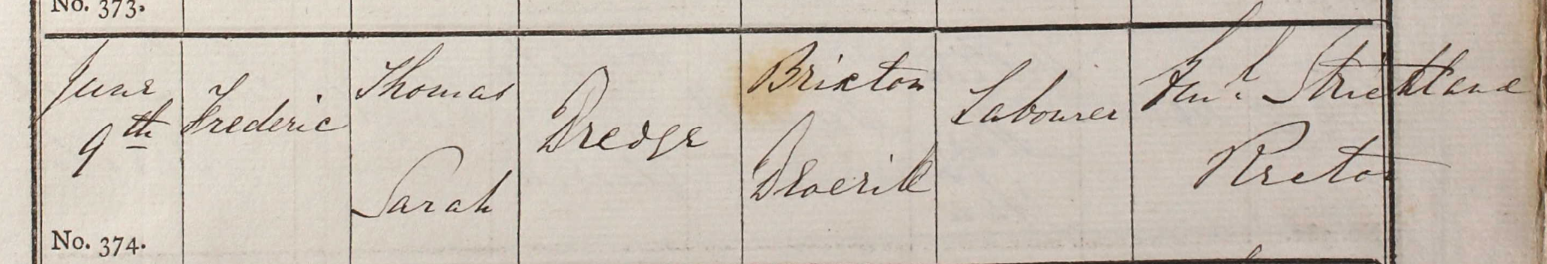 No. 373.
June
9th
Frederic
Thomas
Sarah
Dredge
Brixton
Deverill
Labourer
Strickland
Rector
No. 374.